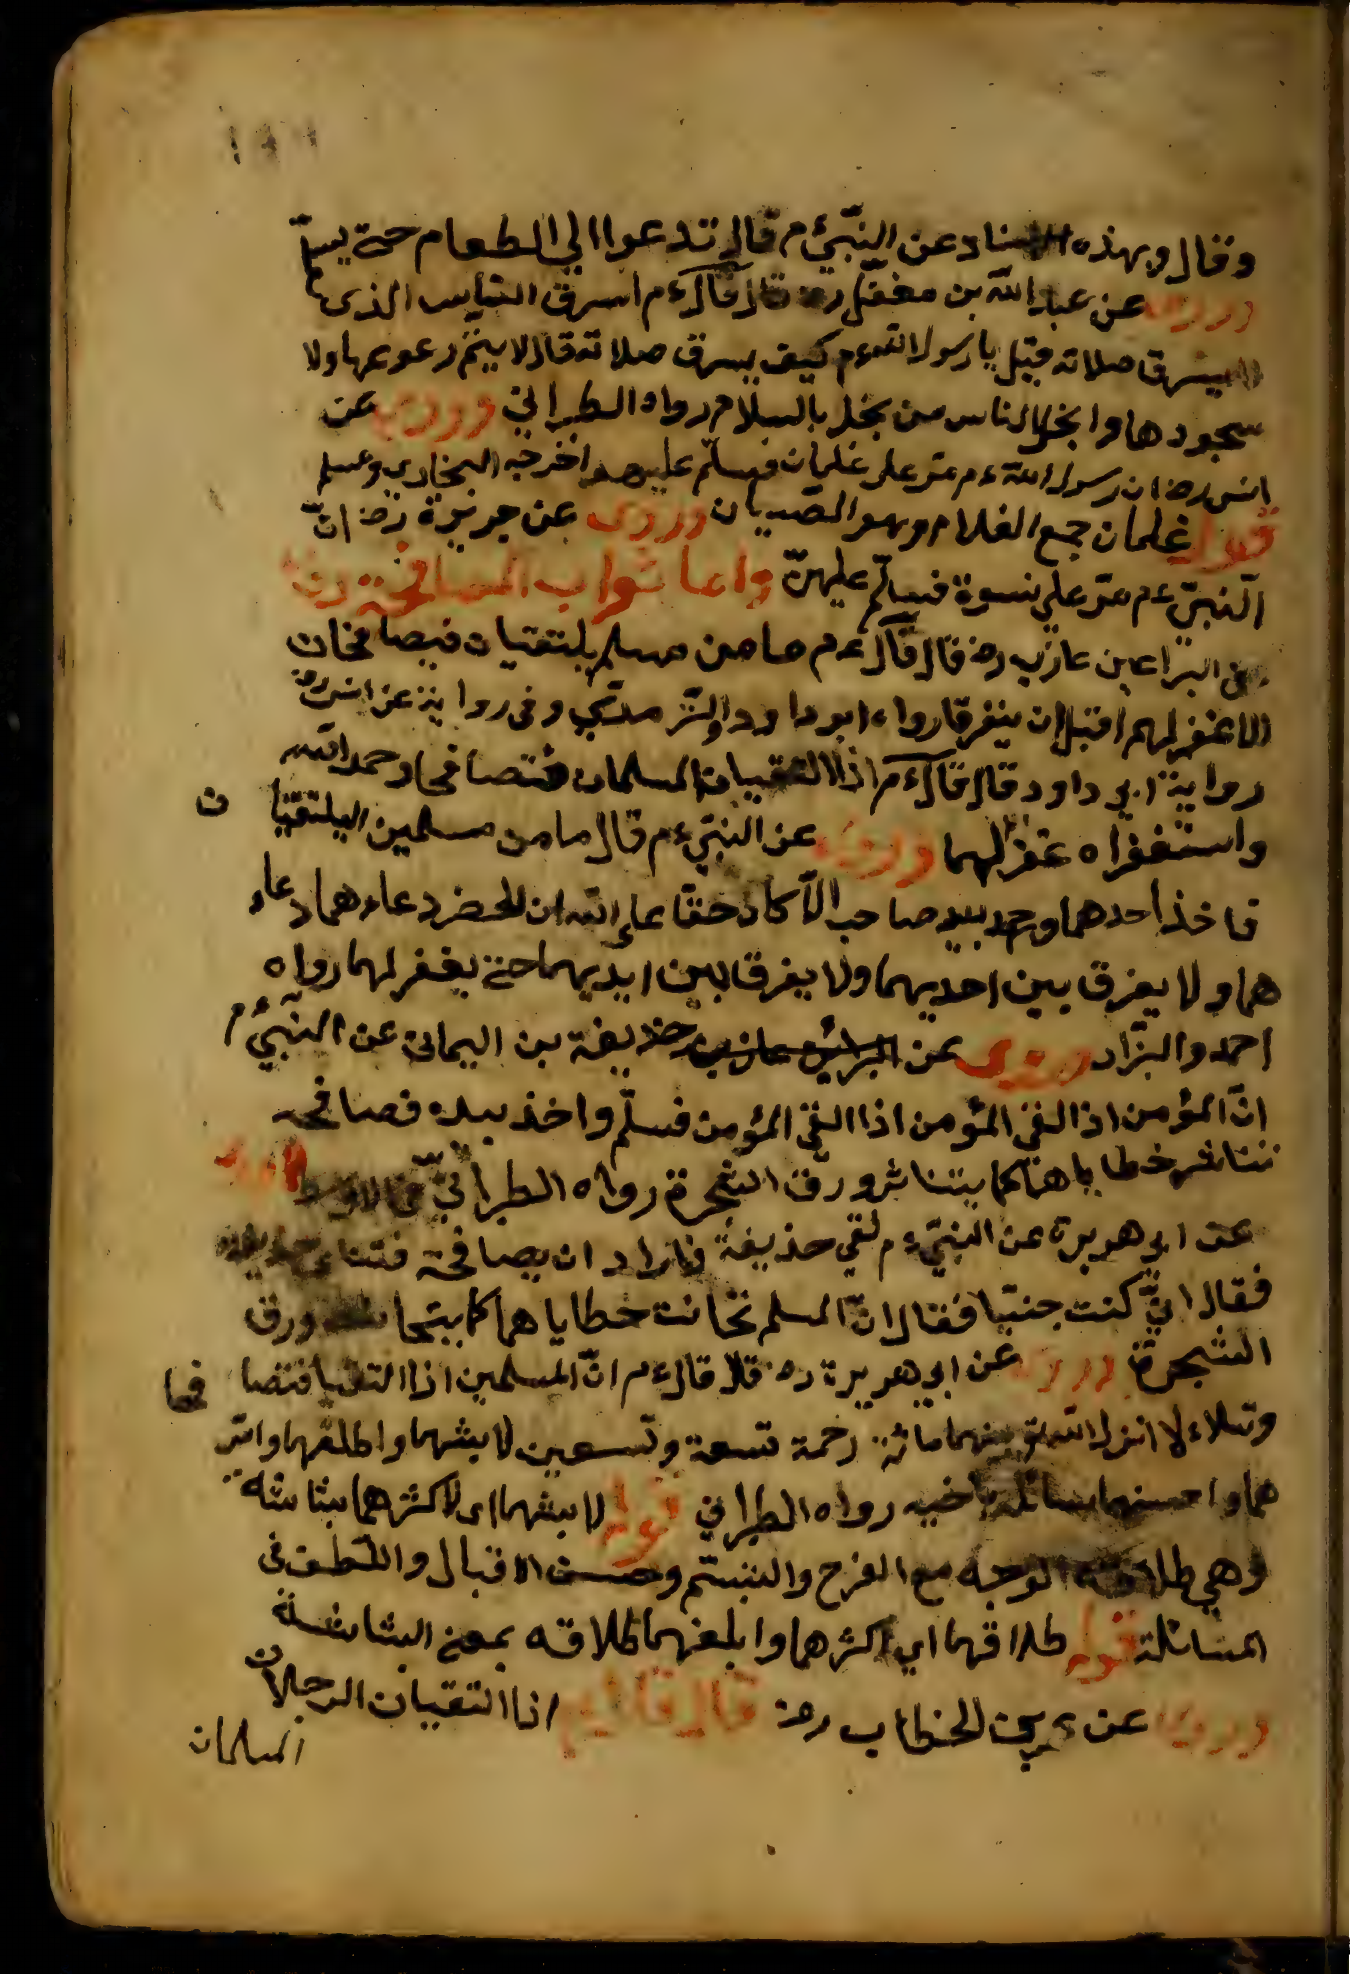 وقال وبهذه الاسناد عن النبىء م قال تدعوا الي الطعام حتى يسلم
وروى عن عبد الله بن مغفل رض قال قال ءم اسرق الناس الذى
يسرق صلاته قيل يا رسول الله ءم كيف يسرق صلاته قال لا يتم ركوعها ولا
سجودها وابخل الناس من بخل بالسلام رواه الطبرانى وروى عن
انس رض ان رسول الله ءم مر على غلمان فسلم عليهم اخرجه البخارى ومسلم
قوله غلمان جمع الغلام وهو الصبيان وروى عن جريرة رض ان
النبىء م مر على نسوة فسلم عليهن واما ثواب المصافحة
عن البراء بن عازب رض قال قال ءم ما من مسلم يلتقيان فيصافحان
الا غفر لهم اقبل ان ينفرقا رواه ابو داود والترمدى وفى رواية عن انس رض
رواية ابى داود قال قال ءم اذا التقيان المسلمان فتصافحا وحمد الله
واستغفراه غفر لهما وروى عن النبىء م قال ما من مسلمين يلتقيا ن
فاخذ احدهما بيد صاحبه الا كان حقا على الله ان يحضر دعاءهما دعاء
هما ولا يفرق بين احديهما ولا يفرق بين ايديهما حتى يغفر لهما رواه
احمد والبزار وروى عن حذيفة بن اليمانى عن النبىء م
ان المؤمن اذا لقى المؤمن اذا القى المؤمن فسلم واخذ بيده فصافحه
تناثر خطاياهما كما يتناثر ورق الشجرة رواه الطبرانى فى الاوسط
عن ابى هريرة عن النبىء م لقى حذيفة فاراد ان يصافحه فتناحى حذيفة
فقال انى كنت جنبا فقال ان المسلم تحانت خطاياهما كما يتحانت ورق
الشجرة وروى عن ابى هريرة رض قال قال ءم ان المسلمين اذا التقيا فتصا فحا
وتسلاءلا انزل الله بينهما مائة رحمة تسعة وتسعين لابشهما واطلقهما وابر
هما واحسنهما مسائلة باخيه رواه الطبرانى قوله لابشهما اى لاكثرهما بشاشة
وهى طلاقة الوجه مع الفرح والتبسم وحسن الاقبال واللطف فى
المسائلة قوله طلاقهما اى اكثرهما وابلغهما طلاقه بمعنى البشاشة
وروى عن عمر بن الخطاب رض قال قال ءم اذا التقيان الرجلان
المسلمان